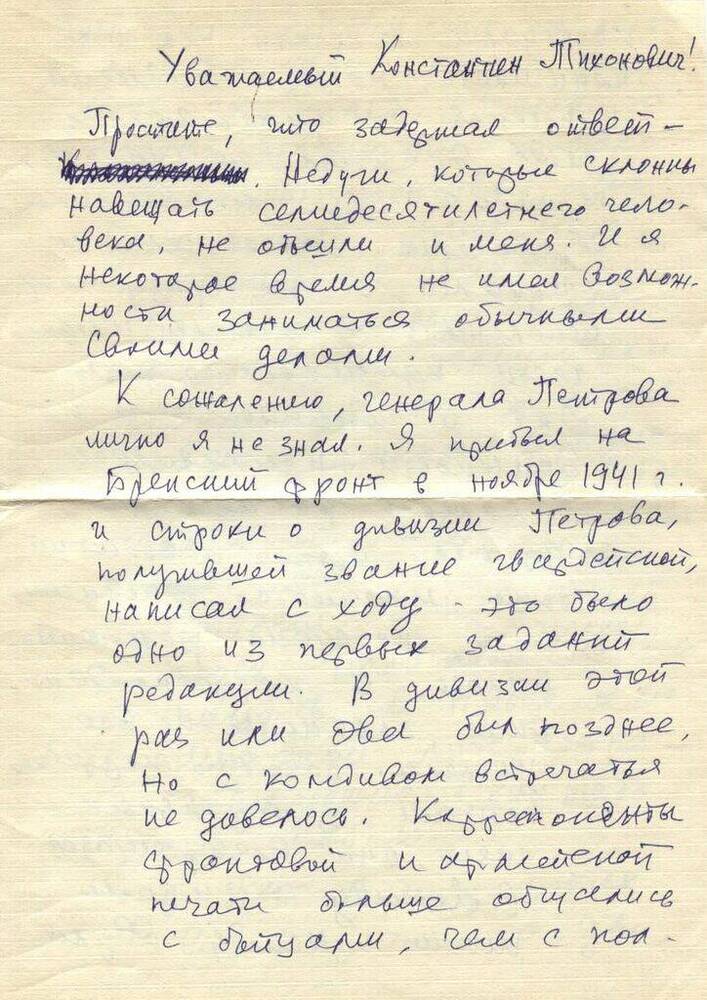 Уважаемый Константин Тихонович!
Простите, что задержал ответ –
. Недуги, которые склонны
навещать семидесятилетнего чело-
века, не обошли и меня. И я
некоторое время не имел возмож-
ности заниматься обычными
своими делами.
К сожалению, генерала Петрова
лично я не знал. Я прибыл на
Брянский фронт в ноябре 1941 г.
и строки о дивизии Петрова,
получившей звание гвардейской,
написал с ходу – это было
одно из первых заданий
редакции. В дивизии этой
раз или два был позднее,
но с комдивом встречаться
не довелось. Корреспонденты
фронтовой и армейской
печати больше общались
с бойцами, чем с пол-